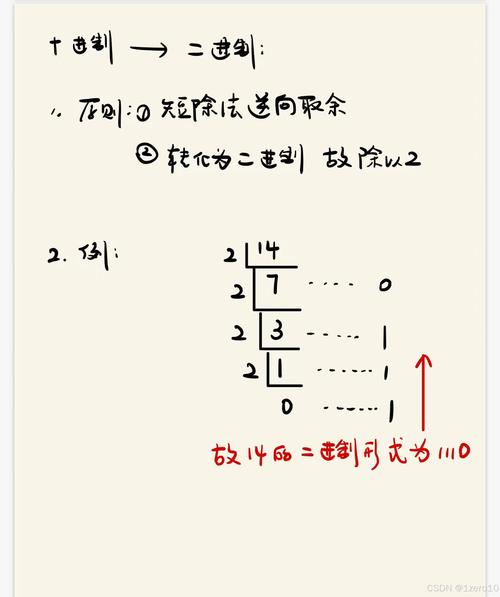 十进制 → 二进制:
1. 原则:① 短除法逆向取余
② 转化为二进制 故除以2
2. 例:
2 14
2 7 ······ 0
2 3 ······ 1
2 1 ······ 1
0 ······ 1
故14的二进制形式为1110
CSDN @1zero10